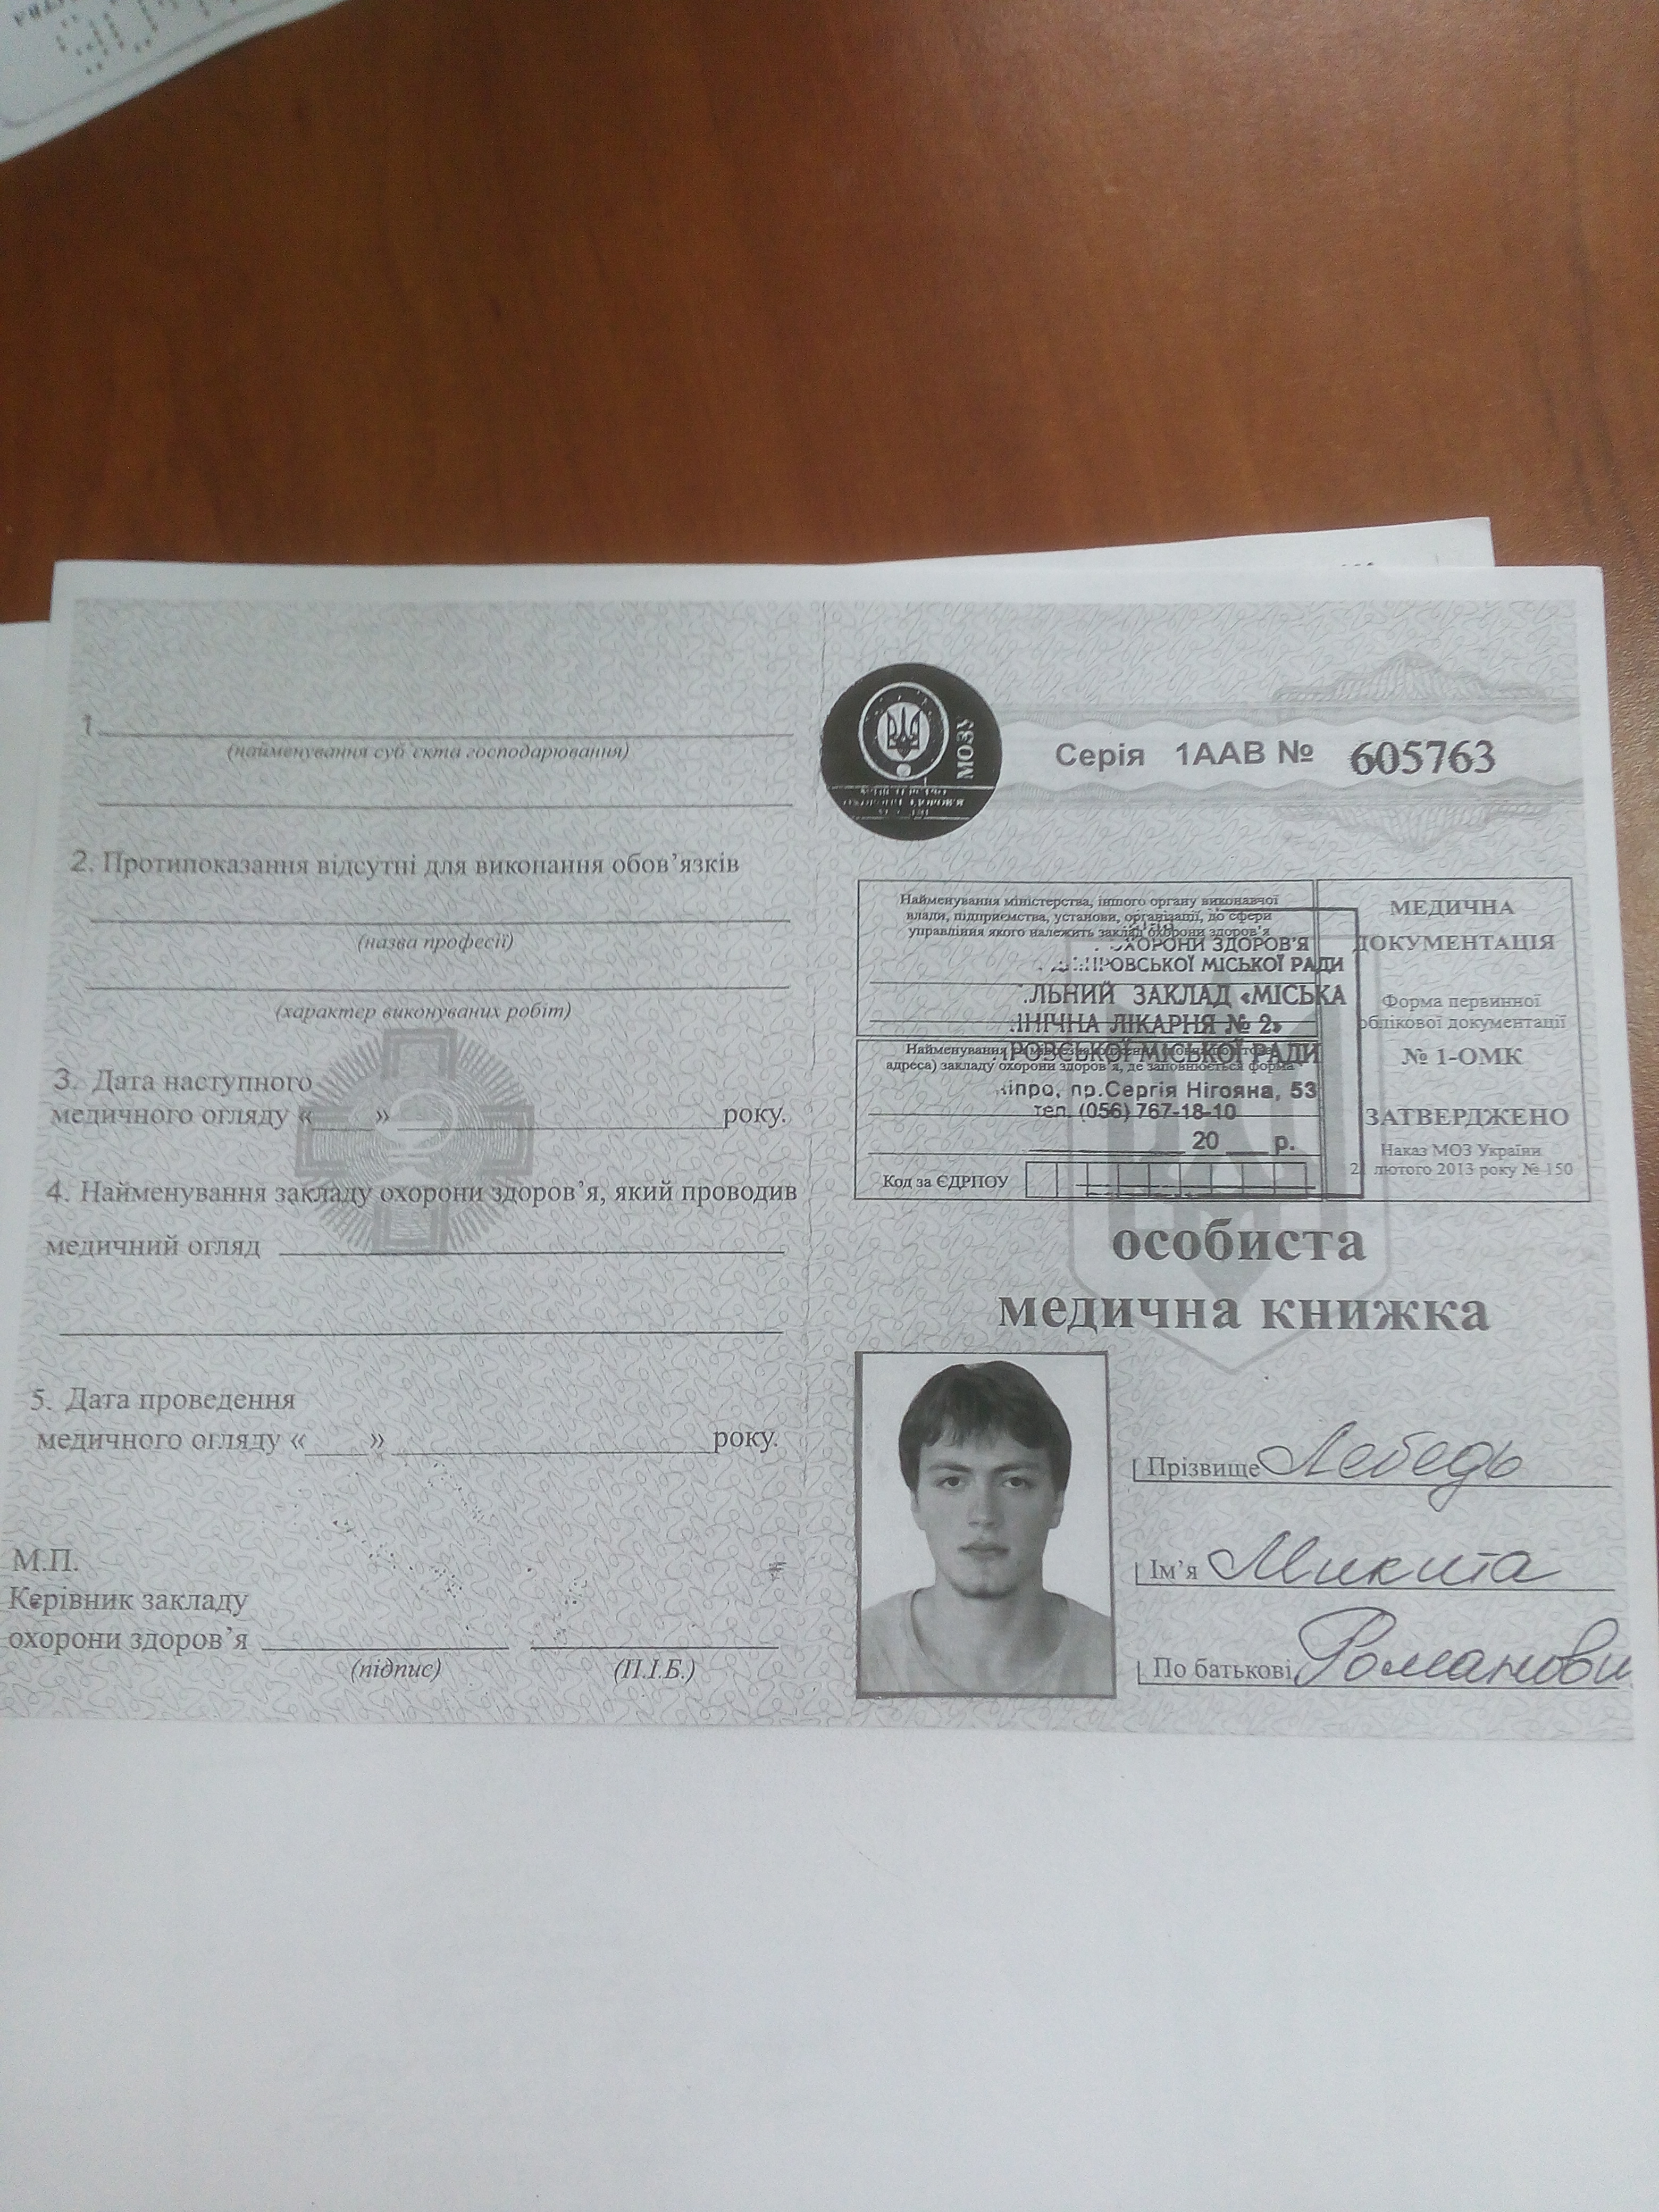 1.
(найменування суб'єкта господарювання)
2. Протипоказання відсутні для виконання обов'язків
(назва професії)
(характер виконуваних робіт)
3. Дата наступного
медичного огляду « » року.
4. Найменування закладу охорони здоров'я, який проводив
медичний огляд
5. Дата проведення
медичного огляду « » року.
М.П.
Керівник закладу
охорони здоров'я
(підпис) (П.І.Б.)
МОЗУ
Серія 1ААВ № 605763
Найменування міністерства, іншого органу виконавчої
влади, підприємства, установи, організації, до сфери
управління якого належить заклад охорони здоров'я
ОХОРОНИ ЗДОРОВ'Я
МІСЬКОЇ РАДИ
ЛЬНИЙ ЗАКЛАД «МІСЬКА
ІНІЧНА ЛІКАРНЯ № 2»
РОВСЬКОЇ МІСЬКОЇ РАДИ
Найменування
адреса) закладу охорони здоров'я, де заповнюється форма
іпро, пр.Сергія Нігояна, 53
тел. (056) 767-18-10
20 р.
Код за ЄДРПОУ
МЕДИЧНА
ДОКУМЕНТАЦІЯ
Форма первинної
облікової документації
№ 1-ОМК
ЗАТВЕРДЖЕНО
Наказ МОЗ України
21 лютого 2013 року № 150
особиста
медична книжка
Прізвище Лебедь
Ім'я Микита
По батькові Романови